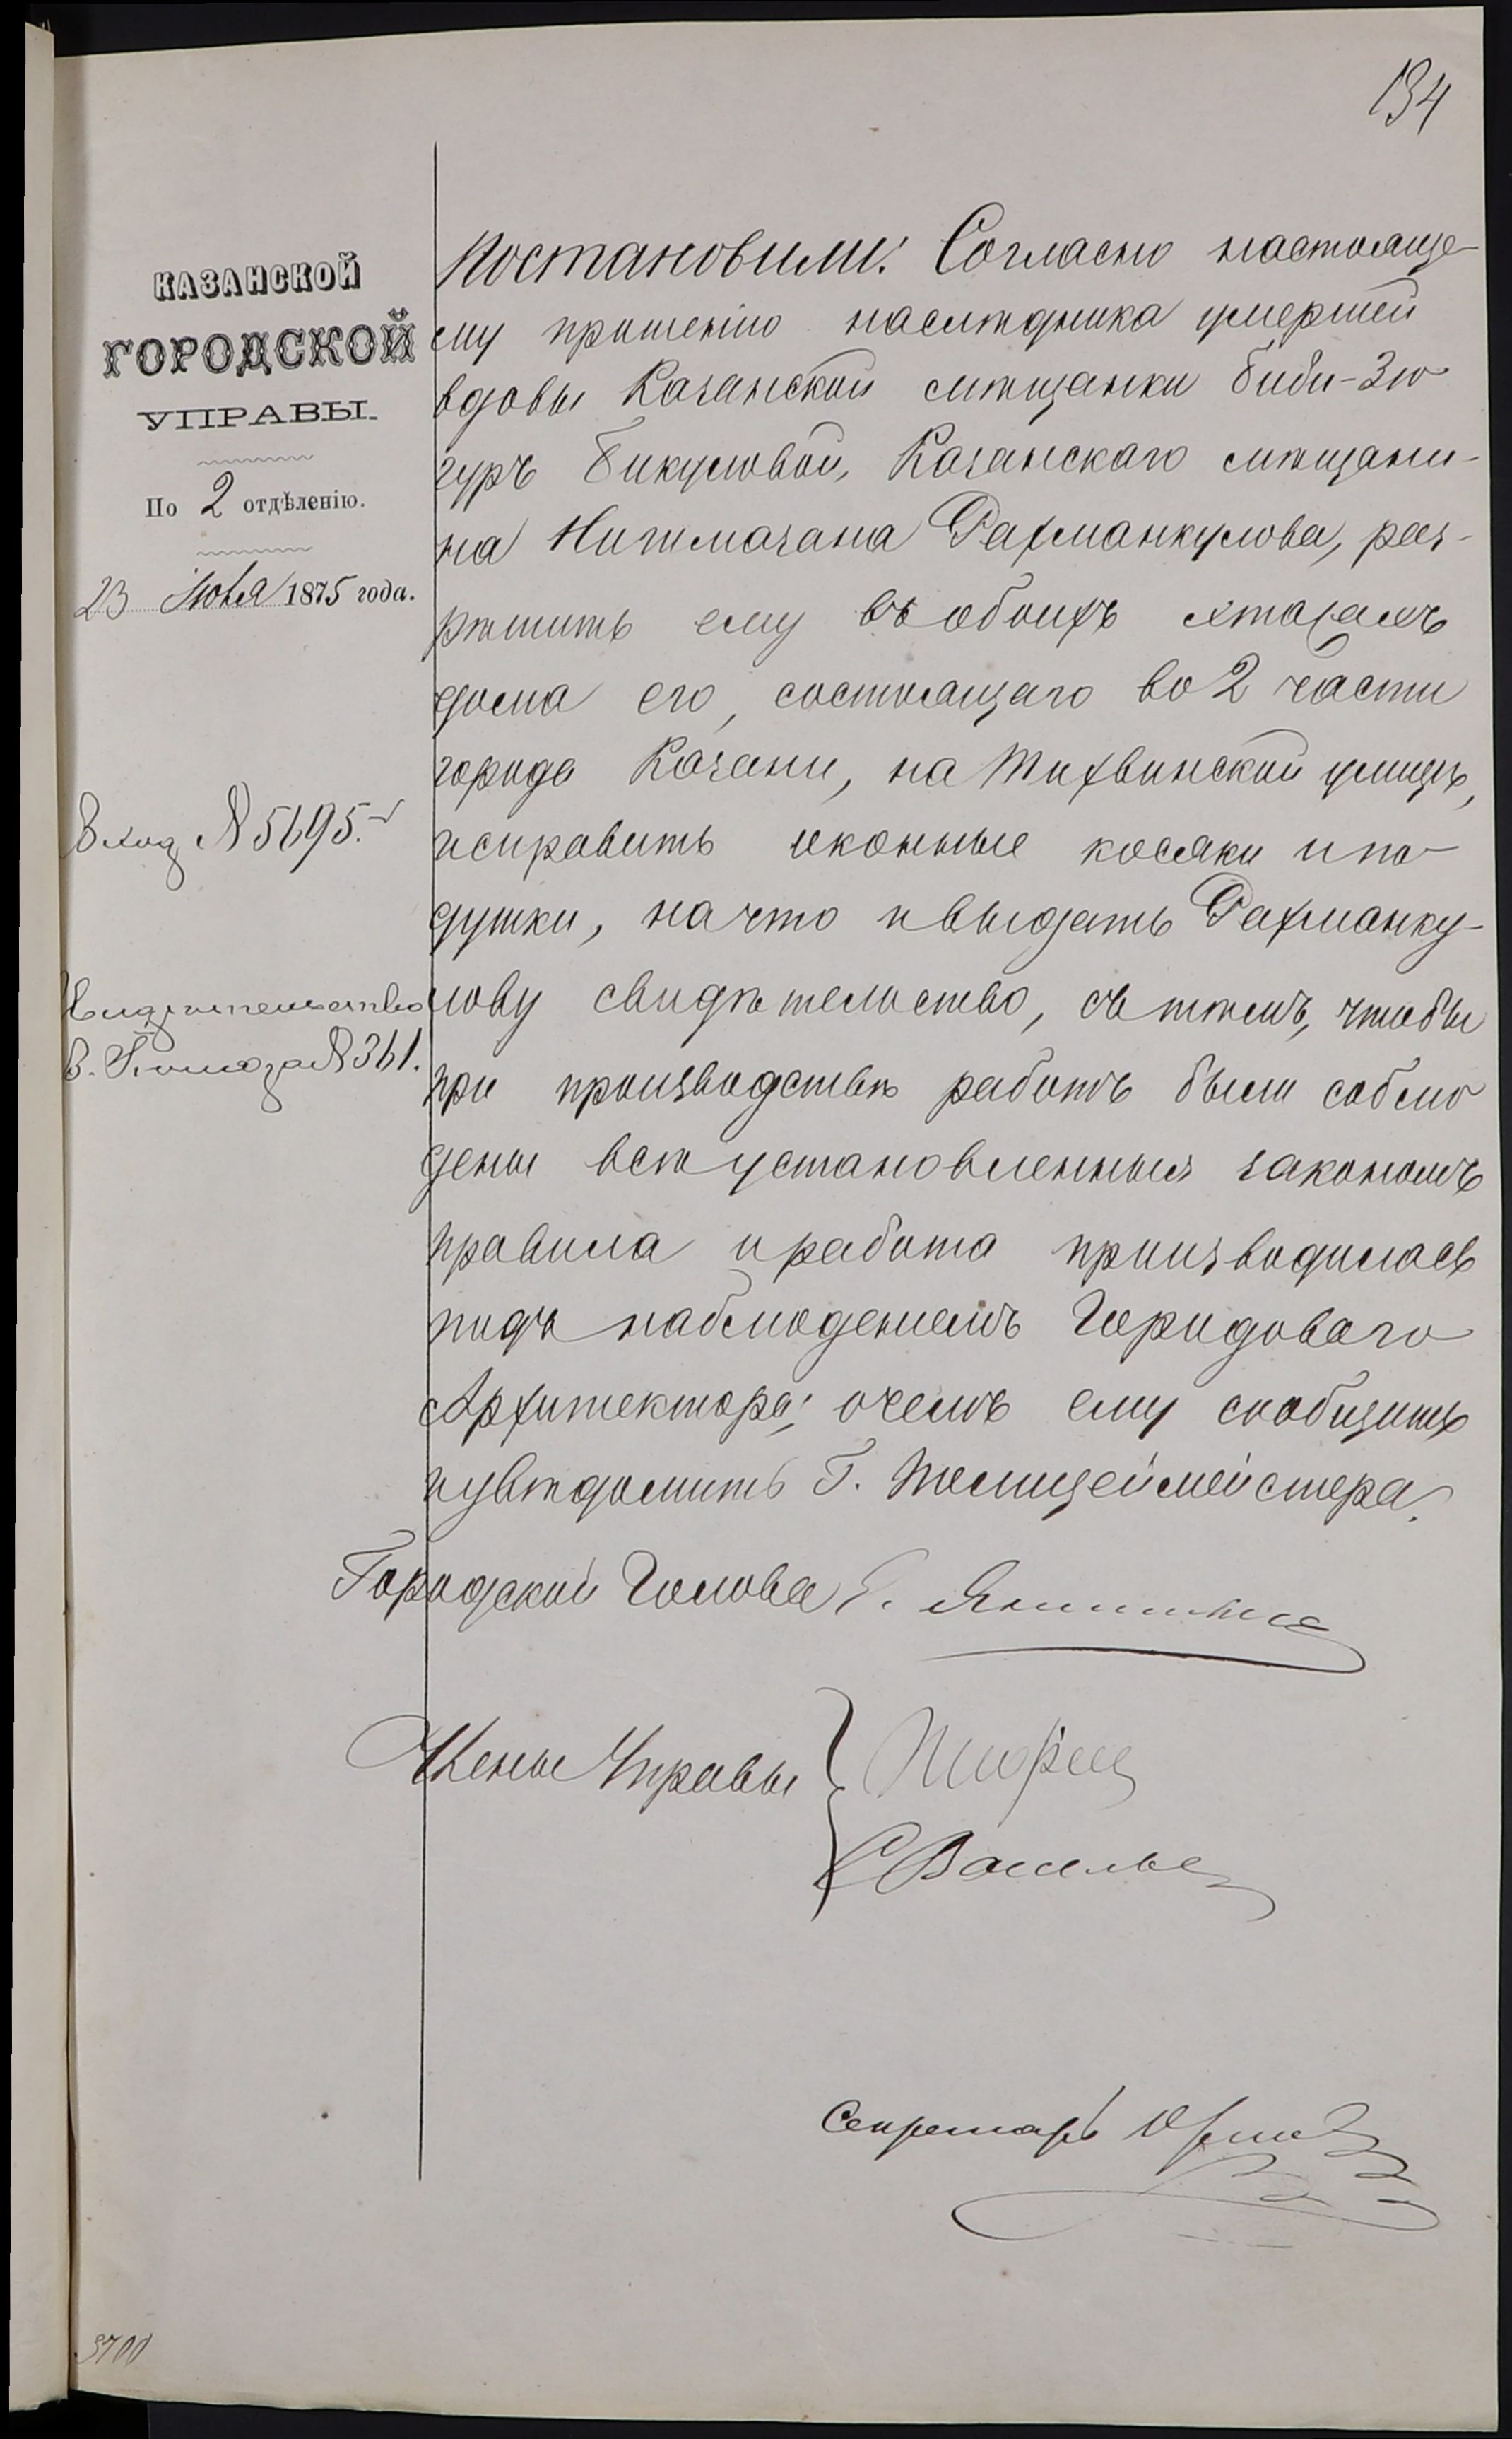 134
КАЗАНСКОЙ
ГОРОДСКОЙ
УПРАВЫ.
По 2 отдѣленію.
23 Іюля 1875 года.
Вход № 5695.
Свидѣтельство
в. Рахма № 361.
Постановили: Согласно настояще-
му прошенію наслѣдника умершей
вдовы Казанской мѣщанки Биби-Зю
гуръ Бикуловой, Казанскаго мѣщани-
на Нигмазана Рахманкулова, раз-
рѣшить ему въ обоихъ этажахъ
дома его, состоящаго во 2 части
города Казани, на Тихвинской улицѣ,
исправить оконные косяки и по-
душки, на что и выдать Рахманку-
лову свидѣтельство, съ тѣмъ, чтобы
при производствѣ работъ были соблю
дены всѣ установленныя закономъ
правила и работа производилась
подъ наблюденіемъ Городоваго
Архитектора; о чемъ ему сообщить
и увѣдомить Г. Полицеймейстера.
Городской Голова
Члены Управы
С Васильев
Секретарь
3700